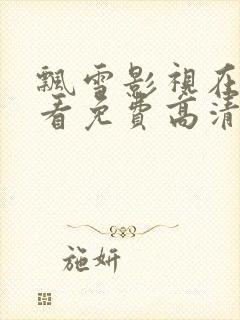 飄雪影視在
看免費高清
施妍